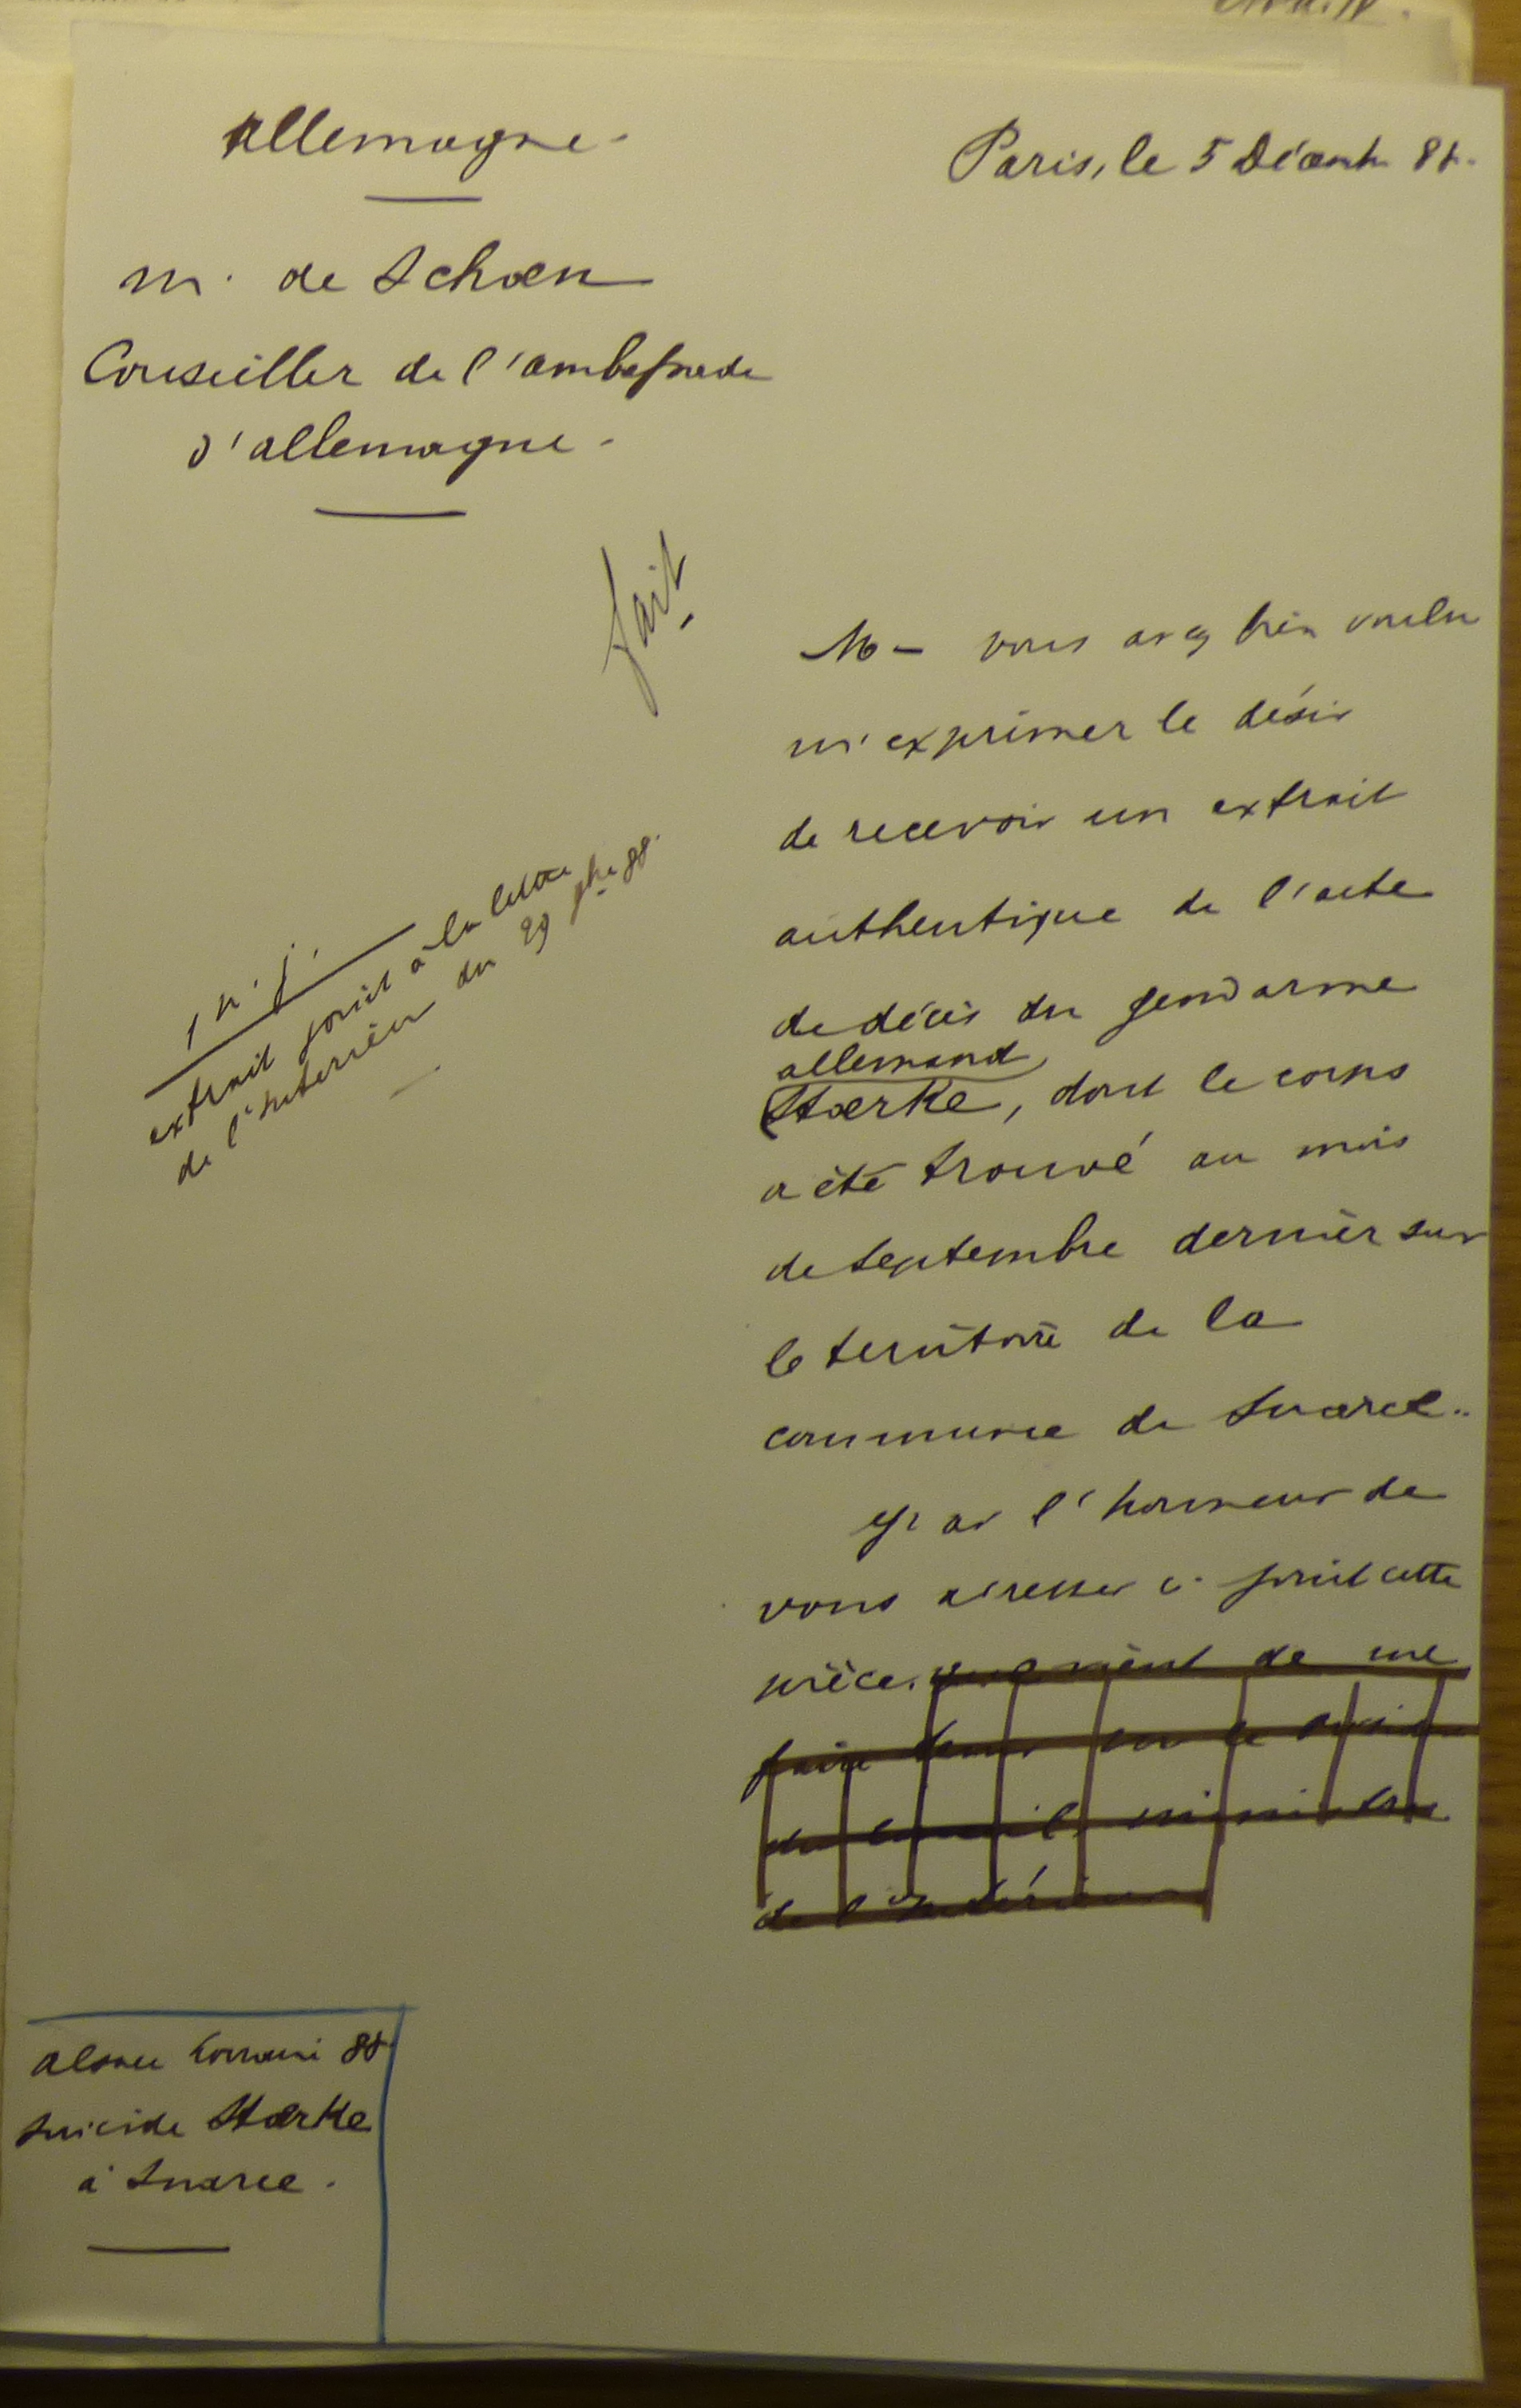 Allemagne.
Paris, le 5 Décemb. 88.
M. de Schœn
Conseiller de l'ambassade
d'allemagne.
fait
M – vous avez bien voulu
m'exprimer le désir
de recevoir un extrait
authentique de l'acte
de décès du gendarme
allemand
Stœrke, dont le corps
a été trouvé au mois
de septembre dernier sur
le territoire de la
commune de Suarce.
J'ai l'honneur de
vous adresser ci-joint cette
pièce. qui vient de me
faire tenir le
du ministre
de l'Intérieur
1 p. j.
extrait joint à la lettre
de l'Intérieur du 29 9bre 88.
Alsace Lorraine 88
Suicide Stœrke
à Suarce.